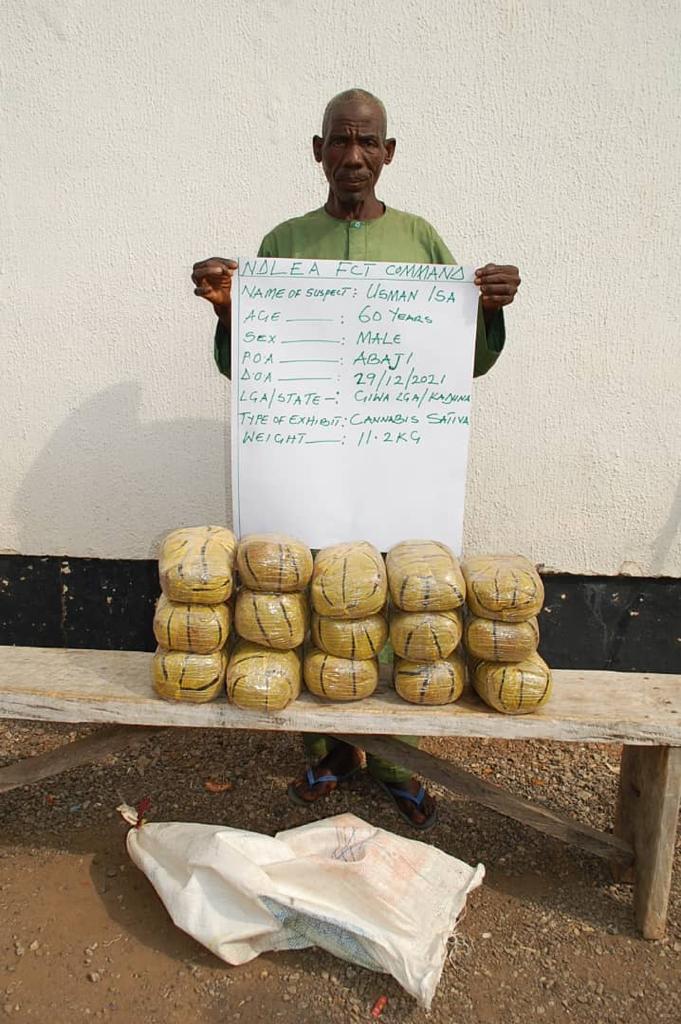 NDLEA FCT COMMAND
NAME OF SUSPECT: USMAN ISA
AGE ———: 60 YEARS
SEX ———: MALE
P.O.A ———: ABAJI
D.O.A ———: 29/12/2021
LGA/STATE —: GIWA LGA/KADUNA
TYPE OF EXHIBIT: CANNABIS SATIVA
WEIGHT ———: 11.2KG